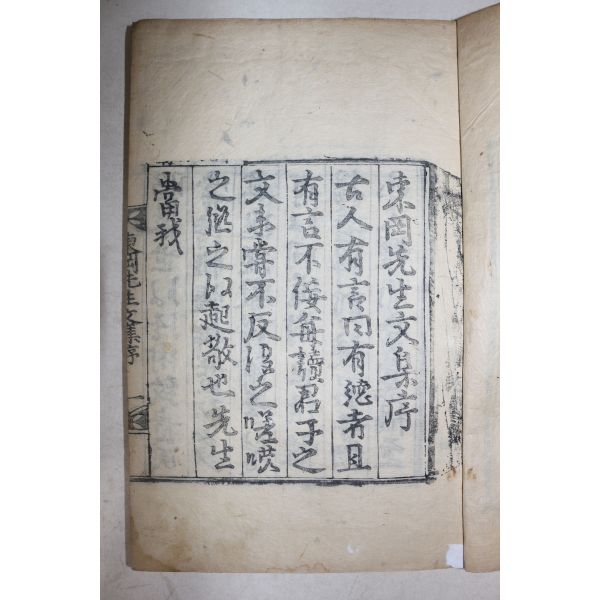 東岡先生文集序
古人有言曰有德者且
有言不佞每讀君子之
文未嘗不反復之嗟嘆
之継之以起敬也先生
當我
東岡先生文集序
一